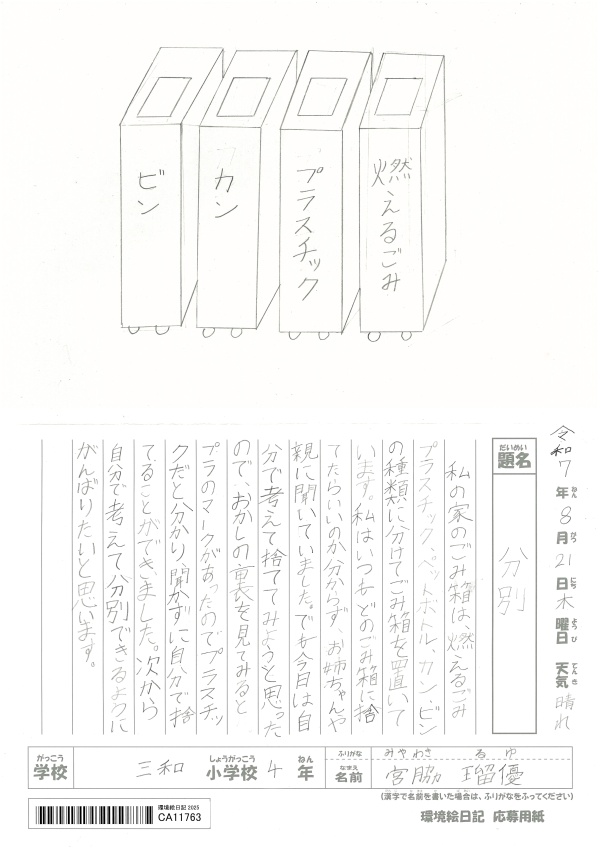 ビン
カン
プラスチック
燃えるごみ
令和7年8月21日木曜日 天気晴れ
ねん がつ にち ようび てんき
だいめい
題名
分別
私の家のごみ箱は、燃えるごみ
プラスチック、ペットボトル、カン、ビン
の種類に分けてごみ箱を置いて
います。私はいつもどのごみ箱に捨
てたらいいのか分からず、お姉ちゃんや
親に聞いていました。でも今日は自
分で考えて捨ててみようと思った
ので、おかしの裏を見てみると
プラのマークがあったのでプラスチッ
クだと分かり聞かずに自分で捨
てることができました。次から
自分で考えて分別できるように
がんばりたいと思います。
がっこう
学校
三和 小学校 4 年
しょうがっこう ねん
ふりがな みやわき るゆ
なまえ
名前 宮脇 瑠優
(漢字で名前を書いた場合は、ふりがなをふってください)
環境絵日記 2025
CA11763
環境絵日記 応募用紙